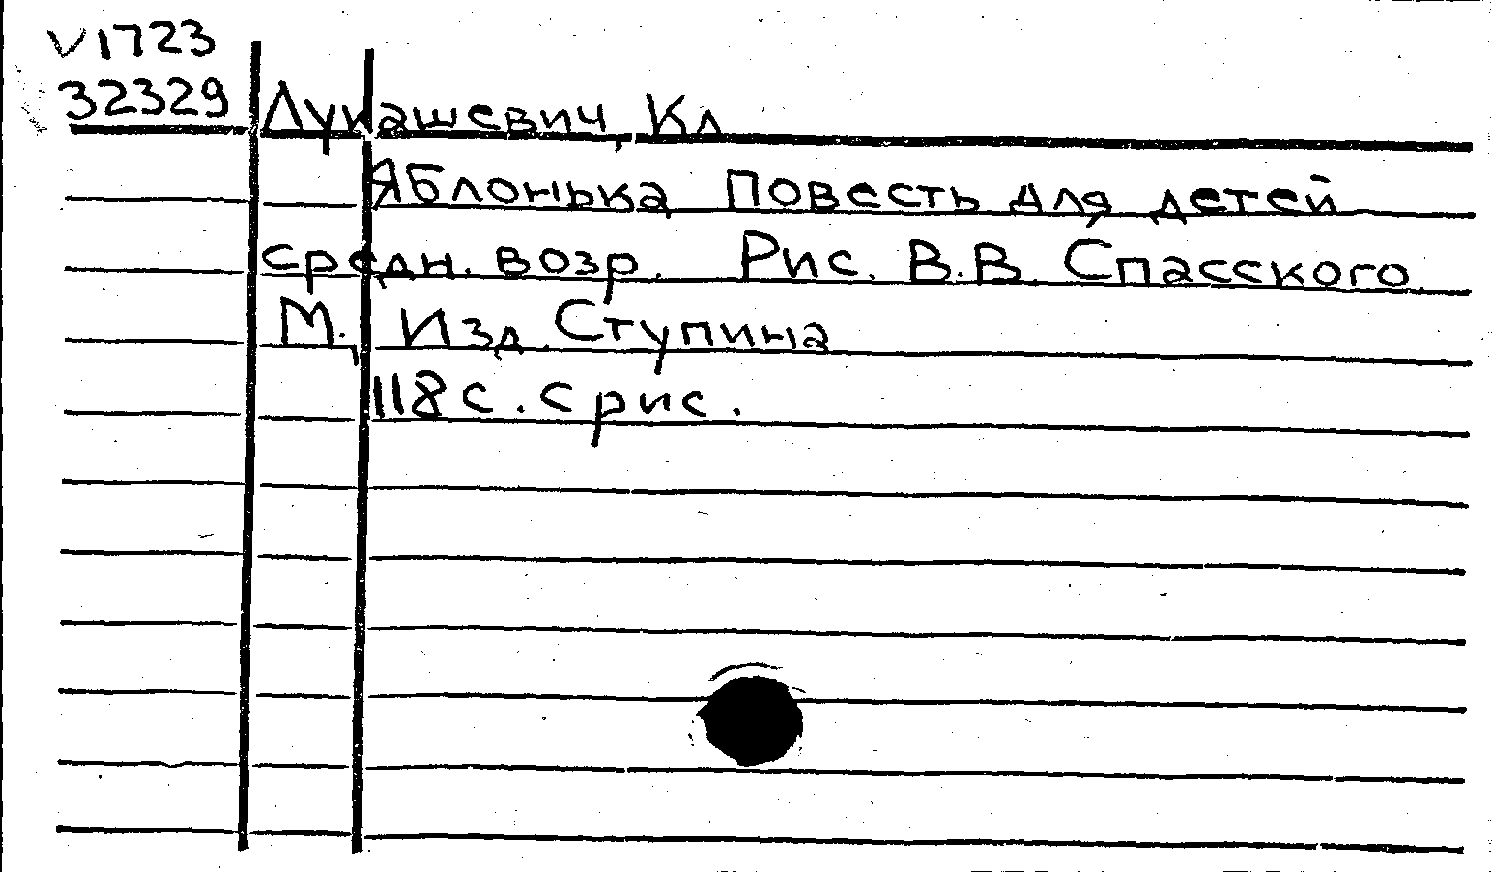 V1723
32329
Лукашевич, Кл
Яблонька Повесть для детей
средн. возр. Рис. В.В. Спасского
М., Изд. Ступина
118 с. с рис.